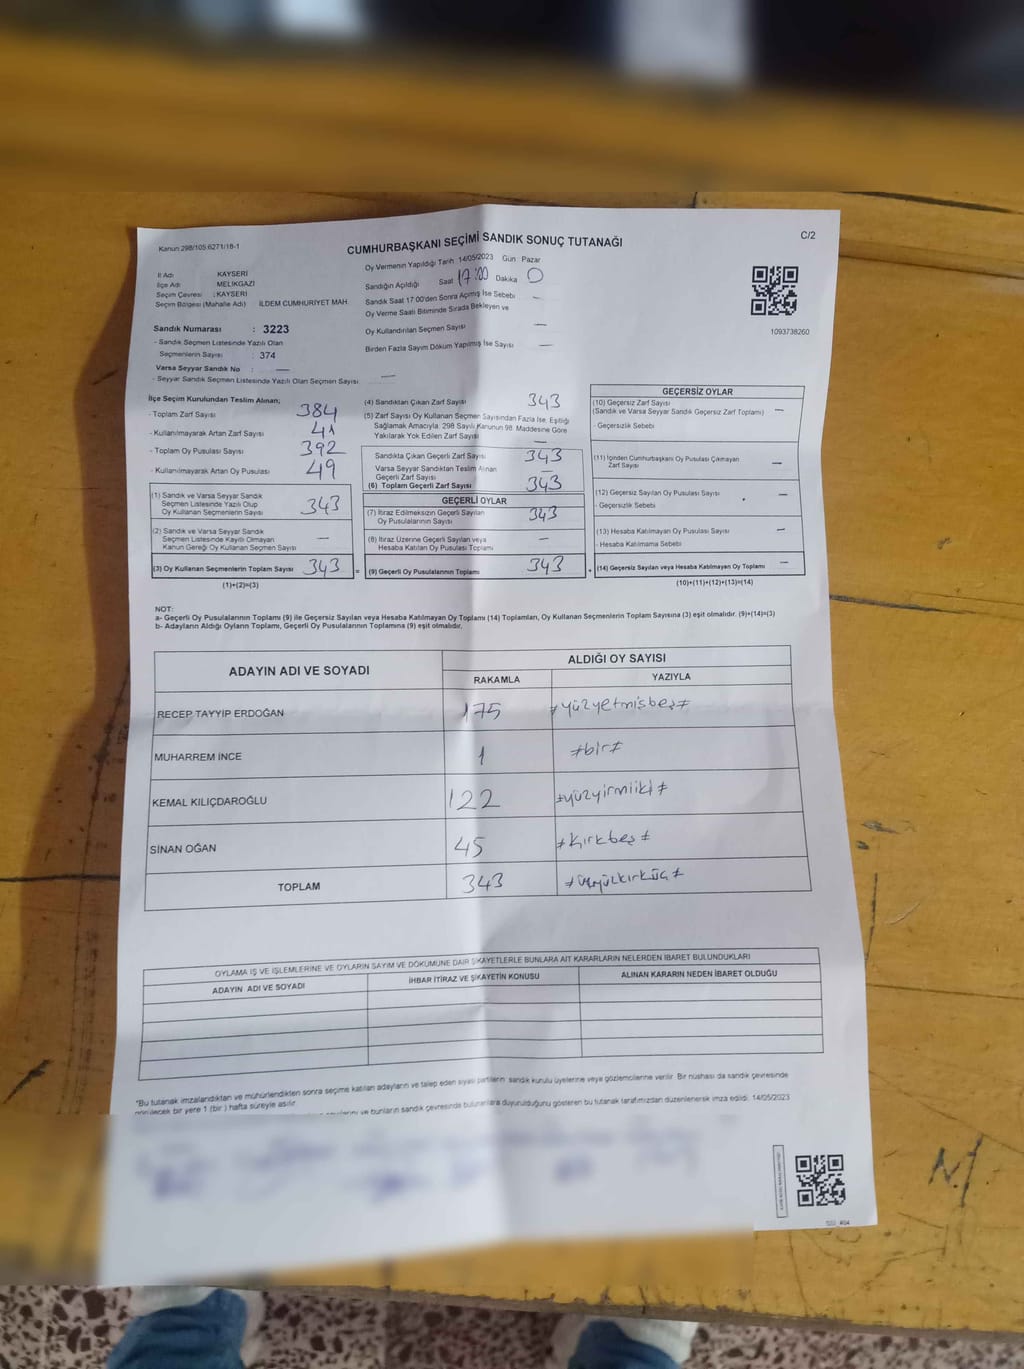 Kanun 298/105:6271/18-1
CUMHURBAŞKANI SEÇİMİ SANDIK SONUÇ TUTANAĞI
C/2
İl Adı KAYSERİ
İlçe Adı MELİKGAZİ
Seçim Çevresi : KAYSERİ
Seçim Bölgesi (Mahalle Adı) İLDEM CUMHURİYET MAH.
Sandık Numarası : 3223
- Sandık Seçmen Listesinde Yazılı Olan
Seçmenlerin Sayısı : 374
Varsa Seyyar Sandık No : —
- Seyyar Sandık Seçmen Listesinde Yazılı Olan Seçmen Sayısı —
Oy Vermenin Yapıldığı Tarih 14/05/2023 Gün: Pazar
Sandığın Açıldığı Saat 17:00 Dakika 0
Sandık Saat 17:00'den Sonra Açılmış İse Sebebi —
Oy Verme Saati Bitiminde Sırada Bekleyen ve
Oy Kullandırılan Seçmen Sayısı —
Birden Fazla Sayım Döküm Yapılmış İse Sayısı —
1093738260
İlçe Seçim Kurulundan Teslim Alınan;
- Toplam Zarf Sayısı 384
- Kullanılmayarak Artan Zarf Sayısı 41
- Toplam Oy Pusulası Sayısı 392
- Kullanılmayarak Artan Oy Pusulası 49
(1) Sandık ve Varsa Seyyar Sandık
Seçmen Listesinde Yazılı Olup
Oy Kullanan Seçmenlerin Sayısı 343
(2) Sandık ve Varsa Seyyar Sandık
Seçmen Listesinde Kayıtlı Olmayan
Kanun Gereği Oy Kullanan Seçmen Sayısı —
(3) Oy Kullanan Seçmenlerin Toplam Sayısı 343
(1)+(2)=(3)
(4) Sandıktan Çıkan Zarf Sayısı 343
(5) Zarf Sayısı Oy Kullanan Seçmen Sayısından Fazla İse, Eşitliği
Sağlamak Amacıyla, 298 Sayılı Kanunun 98. Maddesine Göre
Yakılarak Yok Edilen Zarf Sayısı —
Sandıkta Çıkan Geçerli Zarf Sayısı 343
Varsa Seyyar Sandıktan Teslim Alınan
Geçerli Zarf Sayısı —
(6) Toplam Geçerli Zarf Sayısı 343
GEÇERLİ OYLAR
(7) İtiraz Edilmeksizin Geçerli Sayılan
Oy Pusulalarının Sayısı 343
(8) İtiraz Üzerine Geçerli Sayılan veya
Hesaba Katılan Oy Pusulası Toplamı —
= (9) Geçerli Oy Pusulalarının Toplamı 343
GEÇERSİZ OYLAR
(10) Geçersiz Zarf Sayısı
(Sandık ve Varsa Seyyar Sandık Geçersiz Zarf Toplamı) —
- Geçersizlik Sebebi
(11) İçinden Cumhurbaşkanı Oy Pusulası Çıkmayan
Zarf Sayısı —
(12) Geçersiz Sayılan Oy Pusulası Sayısı —
- Geçersizlik Sebebi
(13) Hesaba Katılmayan Oy Pusulası Sayısı —
- Hesaba Katılmama Sebebi
+ (14) Geçersiz Sayılan veya Hesaba Katılmayan Oy Toplamı —
(10)+(11)+(12)+(13)=(14)
NOT:
a- Geçerli Oy Pusulalarının Toplamı (9) ile Geçersiz Sayılan veya Hesaba Katılmayan Oy Toplamı (14) Toplamları, Oy Kullanan Seçmenlerin Toplam Sayısına (3) eşit olmalıdır. (9)+(14)=(3)
b- Adayların Aldığı Oyların Toplamı, Geçerli Oy Pusulalarının Toplamına (9) eşit olmalıdır.
ADAYIN ADI VE SOYADI
ALDIĞI OY SAYISI
RAKAMLA YAZIYLA
RECEP TAYYİP ERDOĞAN 175 #yüzyetmişbeş#
MUHARREM İNCE 1 #bir#
KEMAL KILIÇDAROĞLU 122 #yüzyirmiiki#
SİNAN OĞAN 45 #kırkbeş#
TOPLAM 343 #üçyüzkırküç#
OYLAMA İŞ VE İŞLEMLERİNE VE OYLARIN SAYIM VE DÖKÜMÜNE DAİR ŞİKAYETLERLE BUNLARA AİT KARARLARIN NELERDEN İBARET BULUNDUKLARI
ADAYIN ADI VE SOYADI İHBAR İTİRAZ VE ŞİKAYETİN KONUSU ALINAN KARARIN NEDEN İBARET OLDUĞU
*Bu tutanak imzalandıktan ve mühürlendikten sonra seçime katılan adayların ve talep eden siyasi partilerin sandık kurulu üyelerine veya gözlemcilerine verilir. Bir nüshası da sandık çevresinde
görülecek bir yere 1 (bir) hafta süreyle asılır.
ve bunların sandık çevresinde bulunanlara duyurulduğunu gösteren bu tutanak tarafımızdan düzenlenerek imza edildi. 14/05/2023